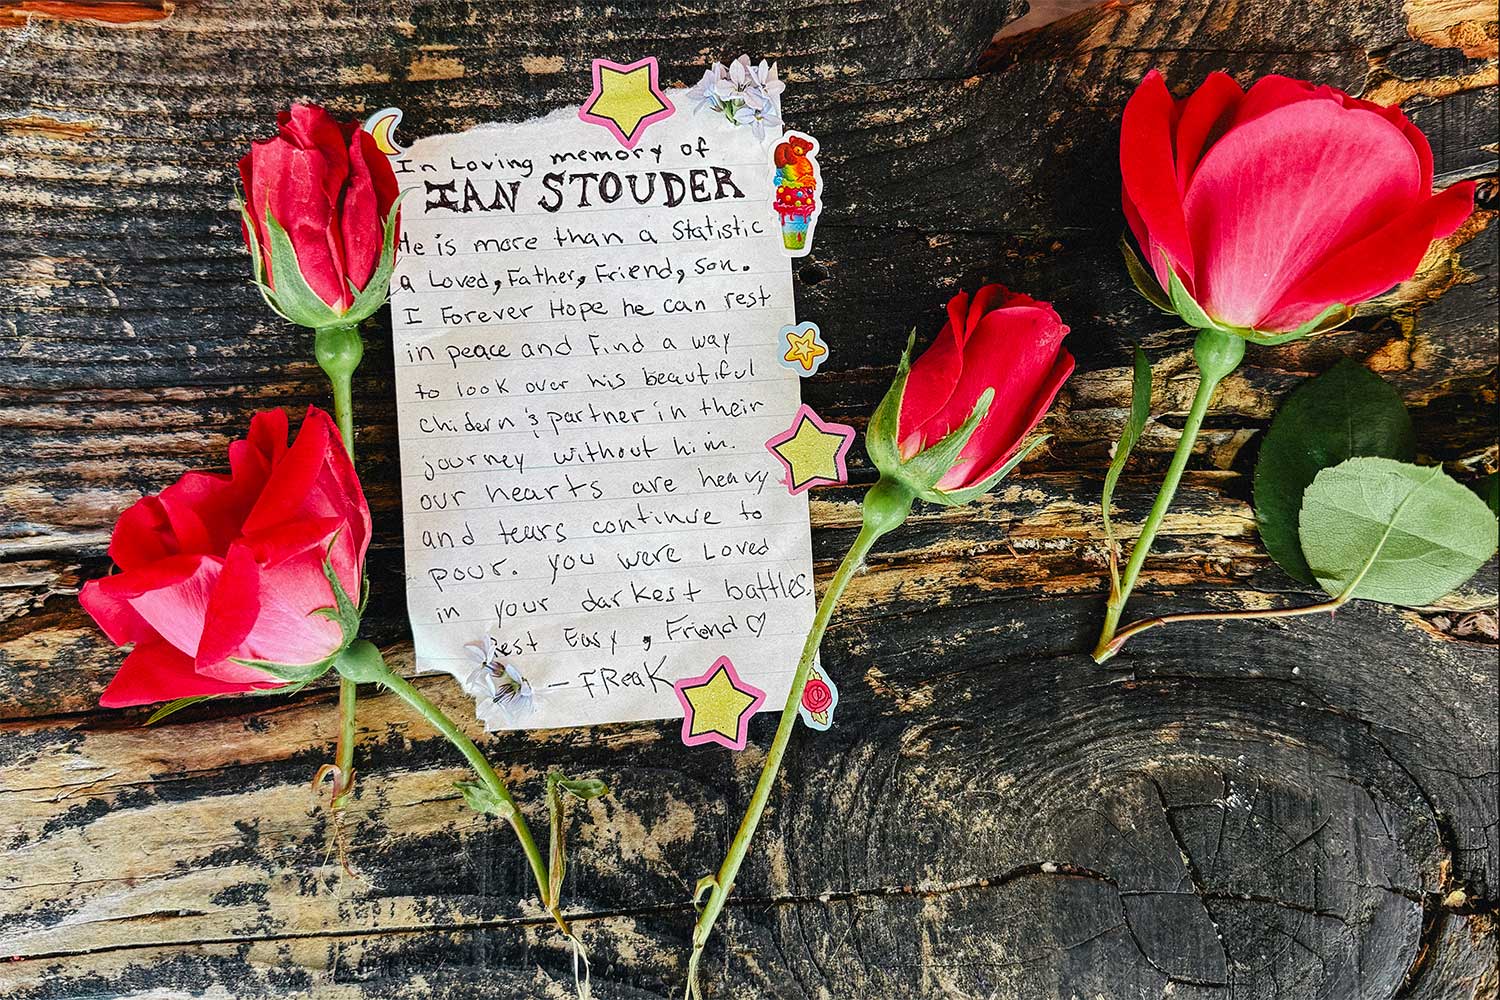 In Loving memory of
IAN STOUDER
He is more than a Statistic
a Loved, Father, Friend, Son.
I Forever Hope he can rest
in peace and Find a way
to look over his beautiful
Childern & partner in their
journey without him.
our hearts are heavy
and tears continue to
pour. you were Loved
in your darkest battles.
Rest Easy, Friend ♡
- FReaK